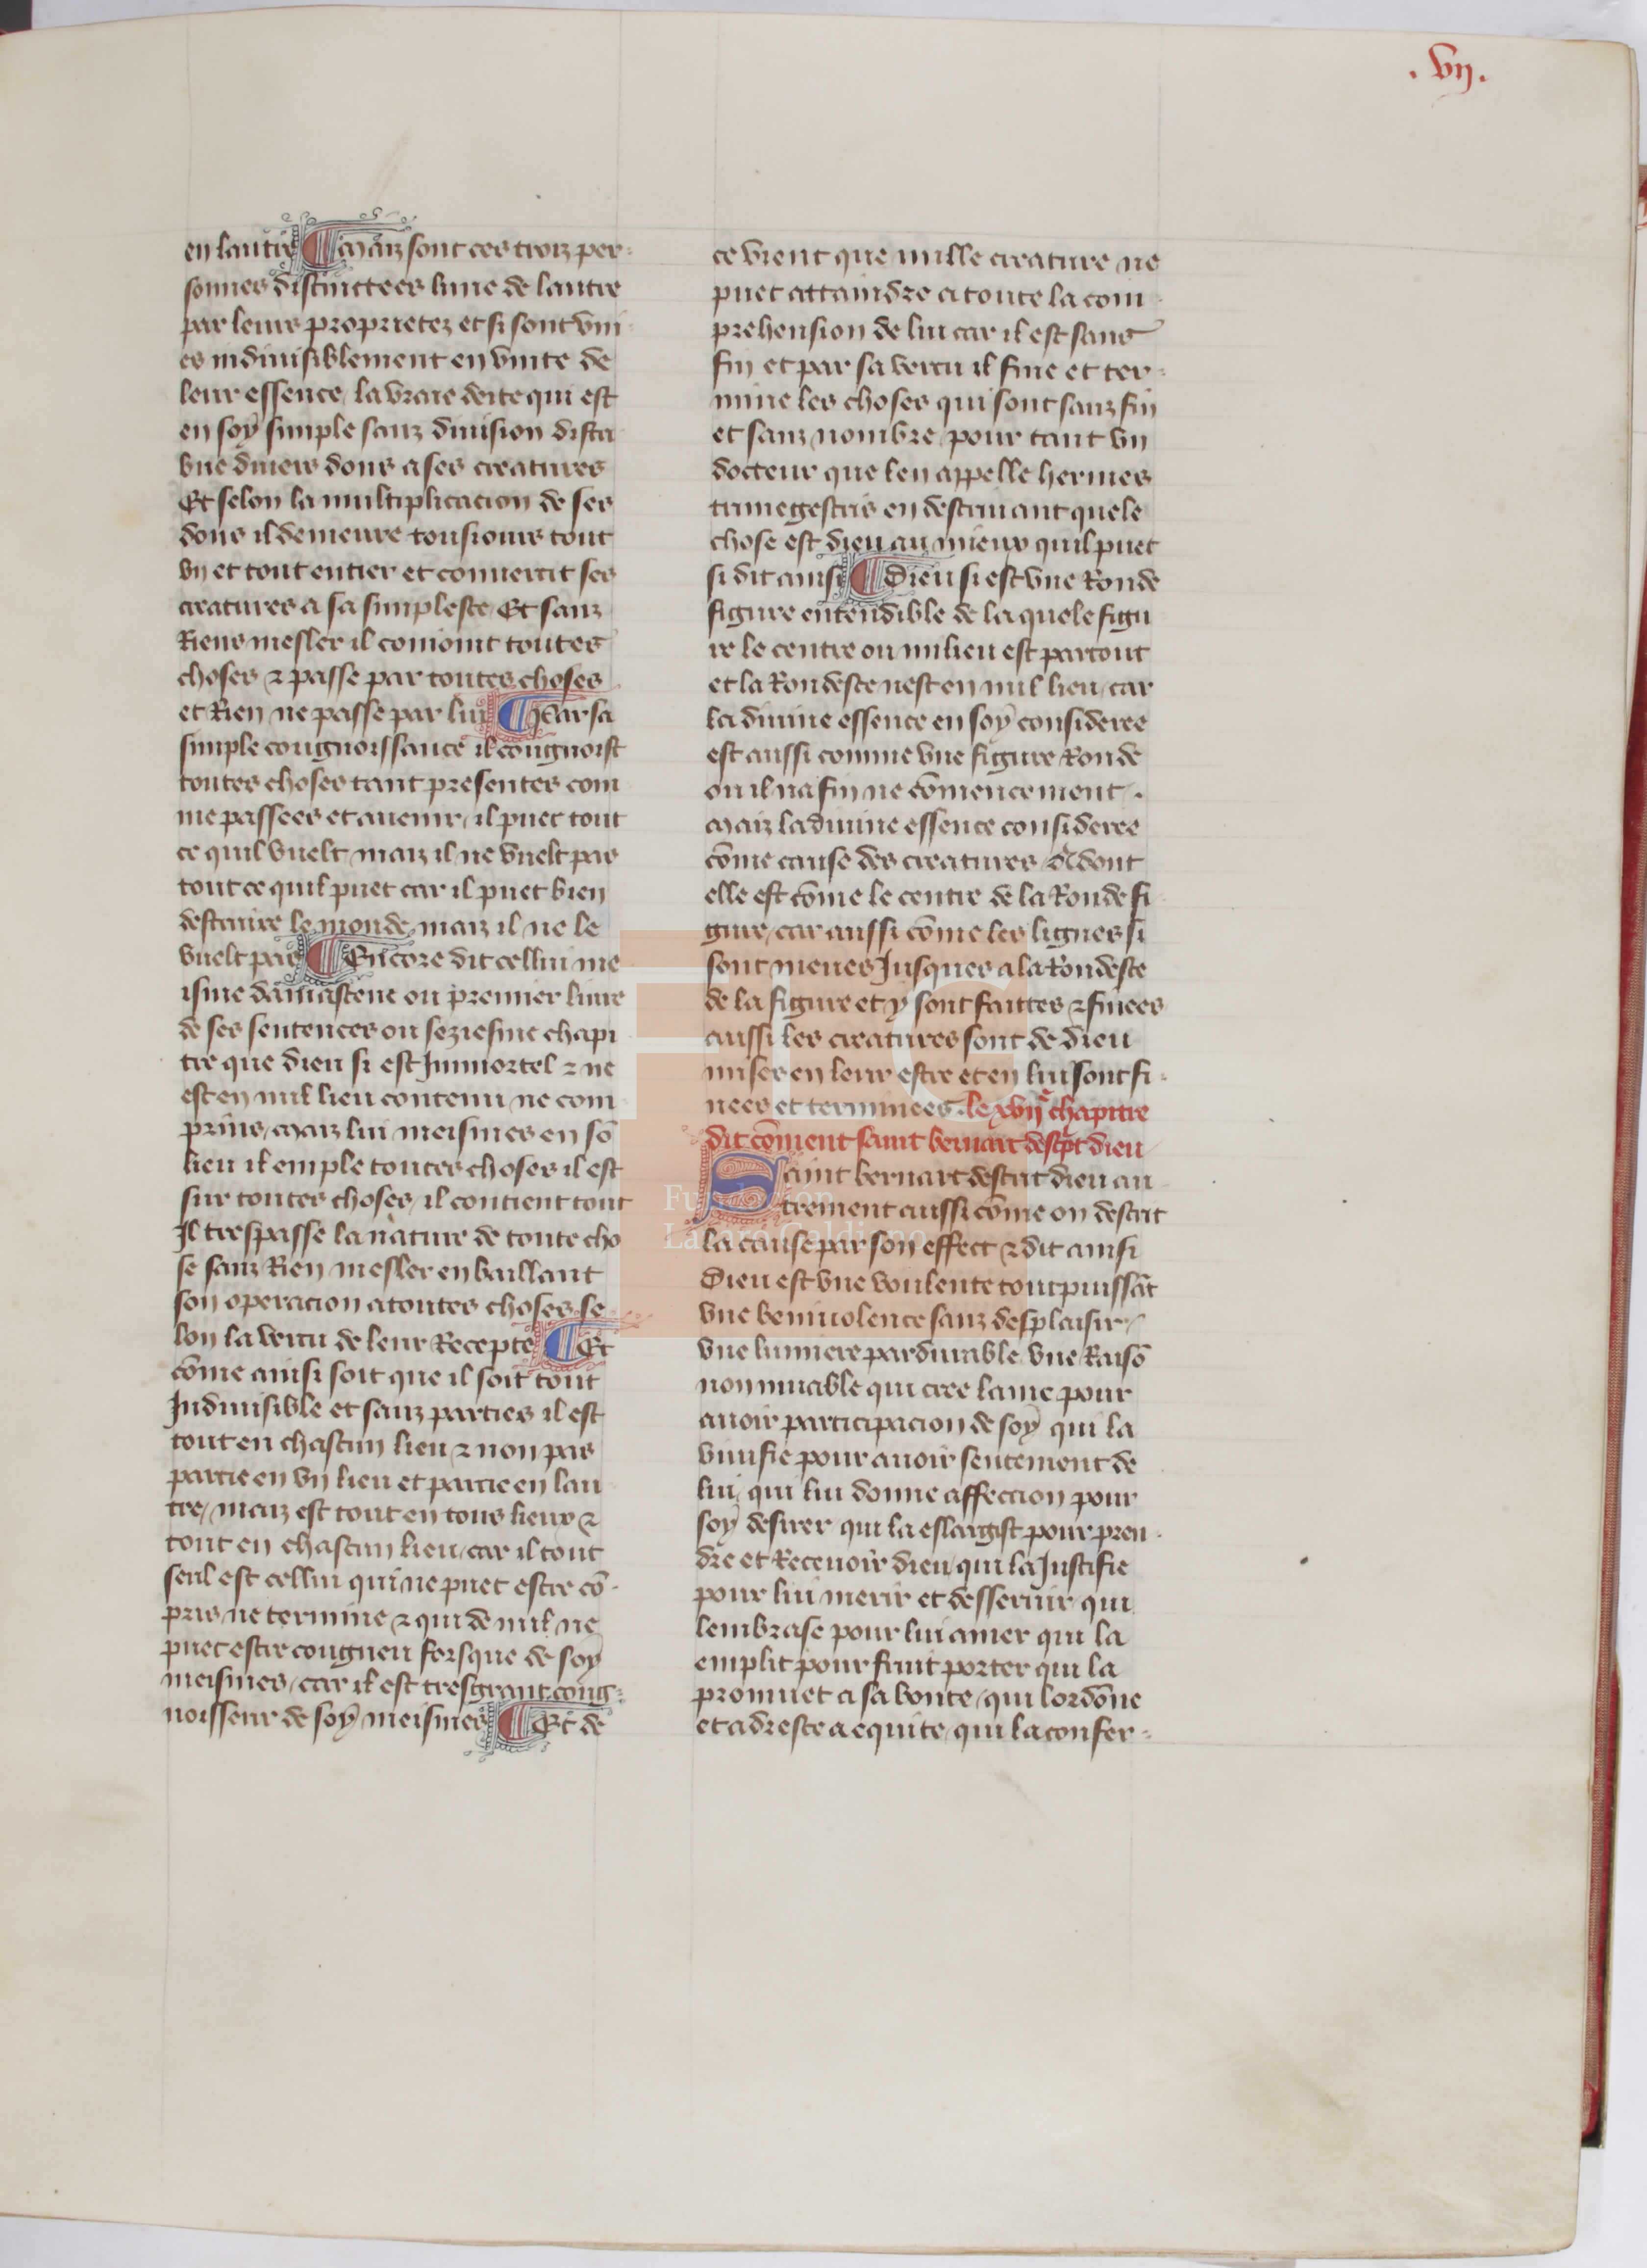 .vij.
en lautre ¶ Maiz sont ces troiz per-
sonnes distinctees lune de lautre
par leurs proprietez et si sont vni
es indiuisiblement en vnite de
leur essence, la vraie deite qui est
en soy simple sanz diuision distri
bue diuers dons a ses creatures
Et selon la multiplicacion de ses
dons il demeure tousiours tout
vn et tout entier et conuertit ses
creatures a sa simpleste, Et sanz
Riens mesler il conioint toutes
choses ⁊ passe par toutes choses
et Rien ne passe par lui ¶ Par sa
simple congnoissance il congnoist
toutes choses tant presentes com
me passees et auenir, il puet tout
ce quil vuelt maiz il ne vuelt pas
tout ce quil puet car il puet bien
destruire le monde maiz il ne le
vuelt pas ¶ Encore dit cellui me
isme damascene ou premier liure
de ses sentences ou seziesme chapi
tre que dieu si est Immortel ⁊ ne
est en nul lieu contenu ne com
prins, Maiz lui meismes en sō
lieu il emple toutes choses il est
sur toutes choses, il contient tout
Il trespasse la nature de toute cho
se sanz Rien mesler en baillant
son operacion a toutes choses se
lon la vertu de leur Recepte ¶ Et
cōme ainsi soit que il soit tout
Indiuisible et sanz parties il est
tout en chascun lieu ⁊ non pas
partie en vn lieu et partie en lau
tre, maiz est tout en tous lieux ⁊
tout en chascun lieu, car il tout
seul est cellui qui ne puet estre cō-
pris, ne termine ⁊ qui de nul ne
puet estre congneu forsque de soy
meismes, car il est tresgrant cong-
noisseur de soy meismes ¶ Et de
ce vient que nulle creature ne
puet attaindre a toute la com
prehension de lui car il est sans
fin et par sa vertu il fine et ter-
mine les choses qui sont sanz fin
et sanz nombre, pour tant vn
docteur que len appelle hermes
trimegestris en descriuant quele
chose est dieu au mieux quil puet
si dit ainsi ¶ Dieu si est vne Ronde
figure entendible de la quele figu
re le centre ou milieu est partout
et la Rondeste nest en nul lieu, car
la diuine essence en soy consideree
est aussi comme vne figure Ronde
ou il na fin ne cōmencement.
Maiz la diuine essence consideree
cōme cause des creatures dont
elle est cōme le centre de la Ronde fi
gure, car aussi cōme les lignes si
sont menes Jusques a la Rondeste
de la figure et y sont faittes ⁊ finees
aussi les creatures sont de dieu
mises en leur estre et en lui sont fi-
nees et terminees. le xvije chapitre
dit cōment saint bernart descript dieu
Saint bernart descrit dieu au
trement aussi cōme on descrit
la cause par son effect ⁊ dit ainsi
Dieu est vne voulente toutpuissāt
vne beniuolence sanz desplaisir,
vne lumiere pardurable vne Raisō
non muable qui cree lame pour
auoir participacion de soy qui la
viuifie pour auoir sentement de
lui, qui lui donne affection pour
soy desirer qui la eslargist pour pren-
dre et Receuoir dieu, qui la Justifie
pour lui merir et desseruir qui
lembrase pour lui amer qui la
emplit pour fruit porter qui la
promuet a sa bonte, qui lordōne
et adreste a equite, qui la confer-
Fundación
Lázaro Galdiano